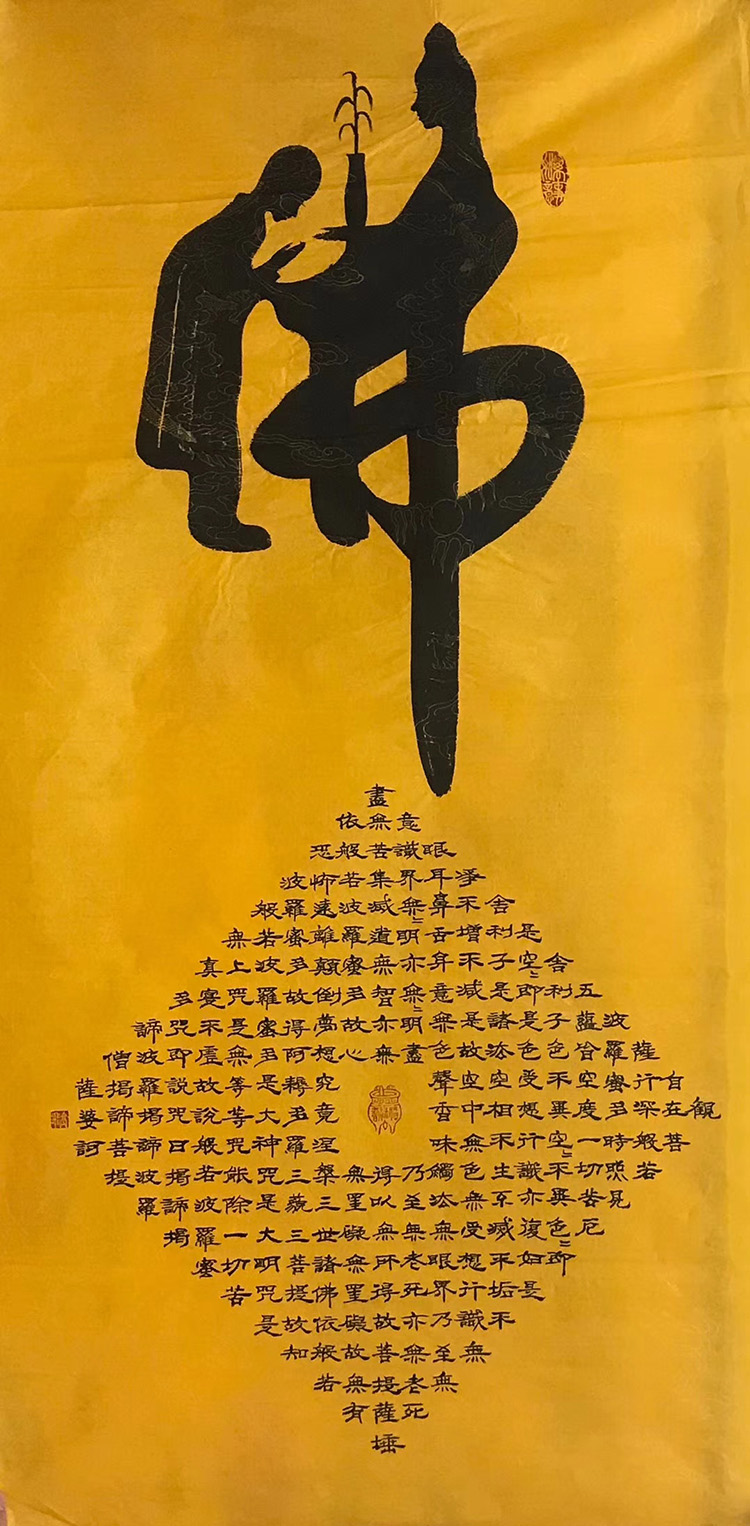 觀
自在菩
薩行深般若
波羅蜜多時照見
五蘊皆空度一切苦厄
舍利子色不異空〻不異色〻即
是空〻即是色受想行識亦復如是
舍利子是諸法空相不生不滅不垢不
淨不增不減是故空中無色無受想行識無
眼耳鼻舌身意無色聲香味觸法無眼界乃至無
意識界無〻明亦無〻明盡乃至無老死亦無老死
盡無苦集滅道無智亦無得以無所得故菩提薩埵
依般若波羅蜜多故心無罣礙無罣礙故無有
恐怖遠離顛倒夢想究竟涅槃三世諸佛依般若
波羅蜜多故得阿耨多羅三藐三菩提故知
般若波羅蜜多是大神咒是大明咒是
無上咒是無等等咒能除一切苦
真實不虛故說般若波羅蜜
多咒即說咒曰揭諦揭
諦波羅揭諦波羅
僧揭諦菩提
薩婆訶